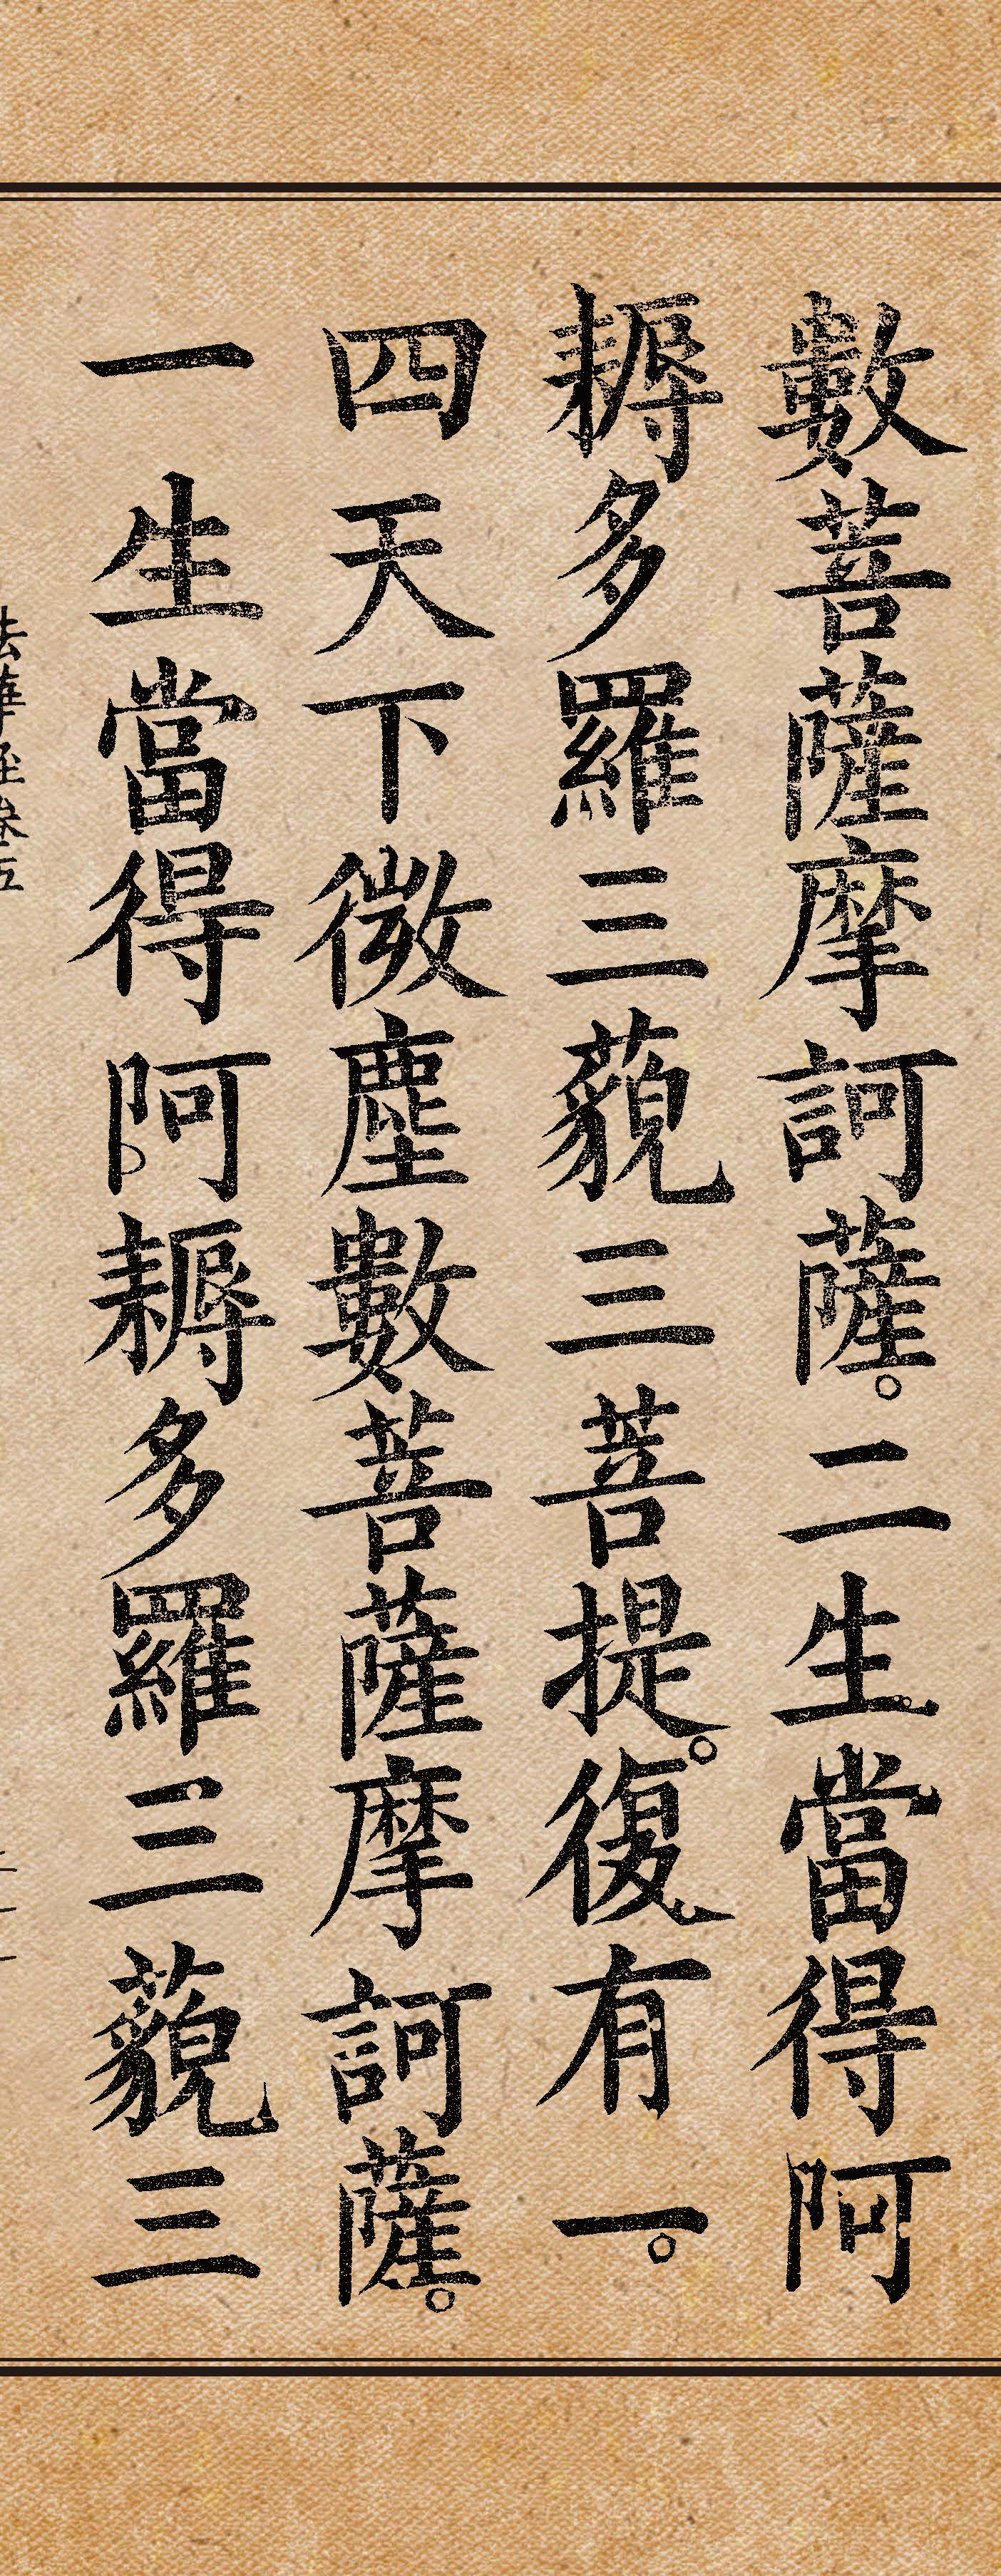 數菩薩摩訶薩。二生當得阿
耨多羅三藐三菩提。復有一。
四天下微塵數菩薩摩訶薩。
一生當得阿耨多羅三藐三
法華經卷五